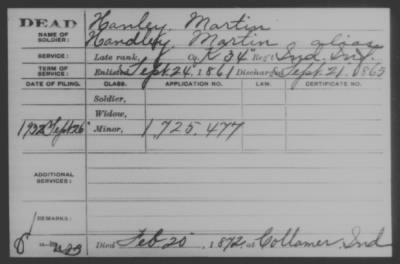 DEAD
NAME OF SOLDIER:
Hanley, Martin
Handley, Martin alias
SERVICE:
Late rank, Co. K 34" Reg't Ind. Inf.
TERM OF SERVICE:
Enlisted Sept. 24, 1861 Discharged Sept. 21, 1865
DATE OF FILING. CLASS. APPLICATION NO. LAW. CERTIFICATE NO.
Soldier,
Widow,
Sept 26" Minor, 1,725,477
ADDITIONAL SERVICES:
REMARKS:
Died Feb. 20, 1872, at Collamer, Ind